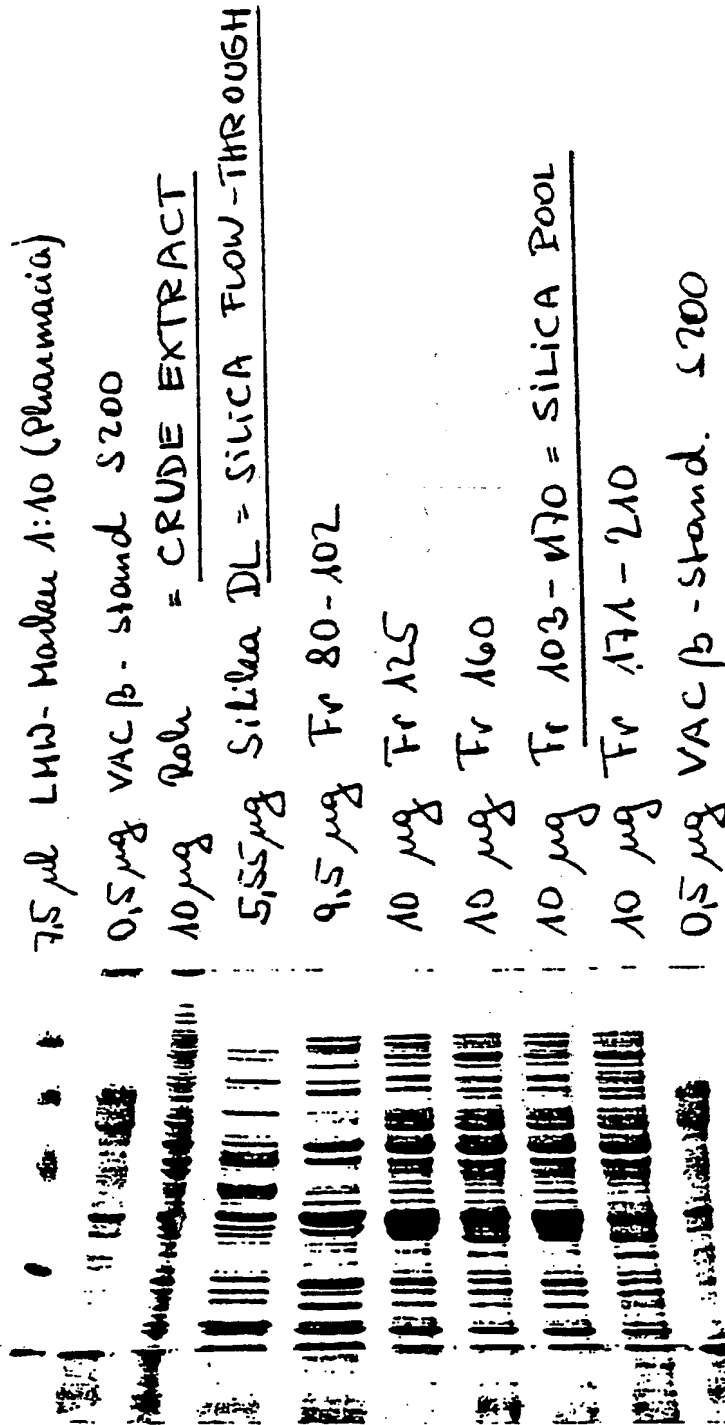 7,5 µl LMW-Marker 1:10 (Pharmacia)
0,5 µg VAC β - Stand S200
10 µg Roh = CRUDE EXTRACT
5,55 µg Silika DL = SiLiCA FLOW-THROUGH
9,5 µg Fr 80-102
10 µg Fr 125
10 µg Fr 160
10 µg Fr 103-170 = SiLiCA POOL
10 µg Fr 171-210
0,5 µg VAC β - Stand. S200